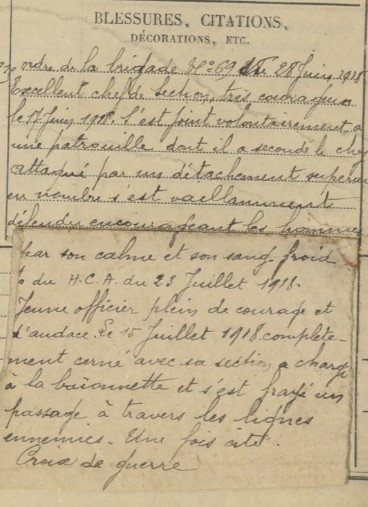 BLESSURES, CITATIONS,
DÉCORATIONS, ETC.
ordre de la brigade N° 69 du 28 Juin 1918
Excellent chef de section, très courageux
le 17 Juin 1918. s'est joint volontairement a
une patrouille dont il a secondé le chef
attaqué par un détachement supérieur
en nombre s'est vaillamment
défendu encourageant les hommes
par son calme et son sang froid
du H.C.A. du 23 Juillet 1918.
Jeune officier plein de courage et
d'audace. Le 15 Juillet 1918 complète-
ment cerné avec sa section a chargé
à la baionnette et s'est frayé un
passage à travers les lignes
ennemies. Une fois cité.
Croix de guerre